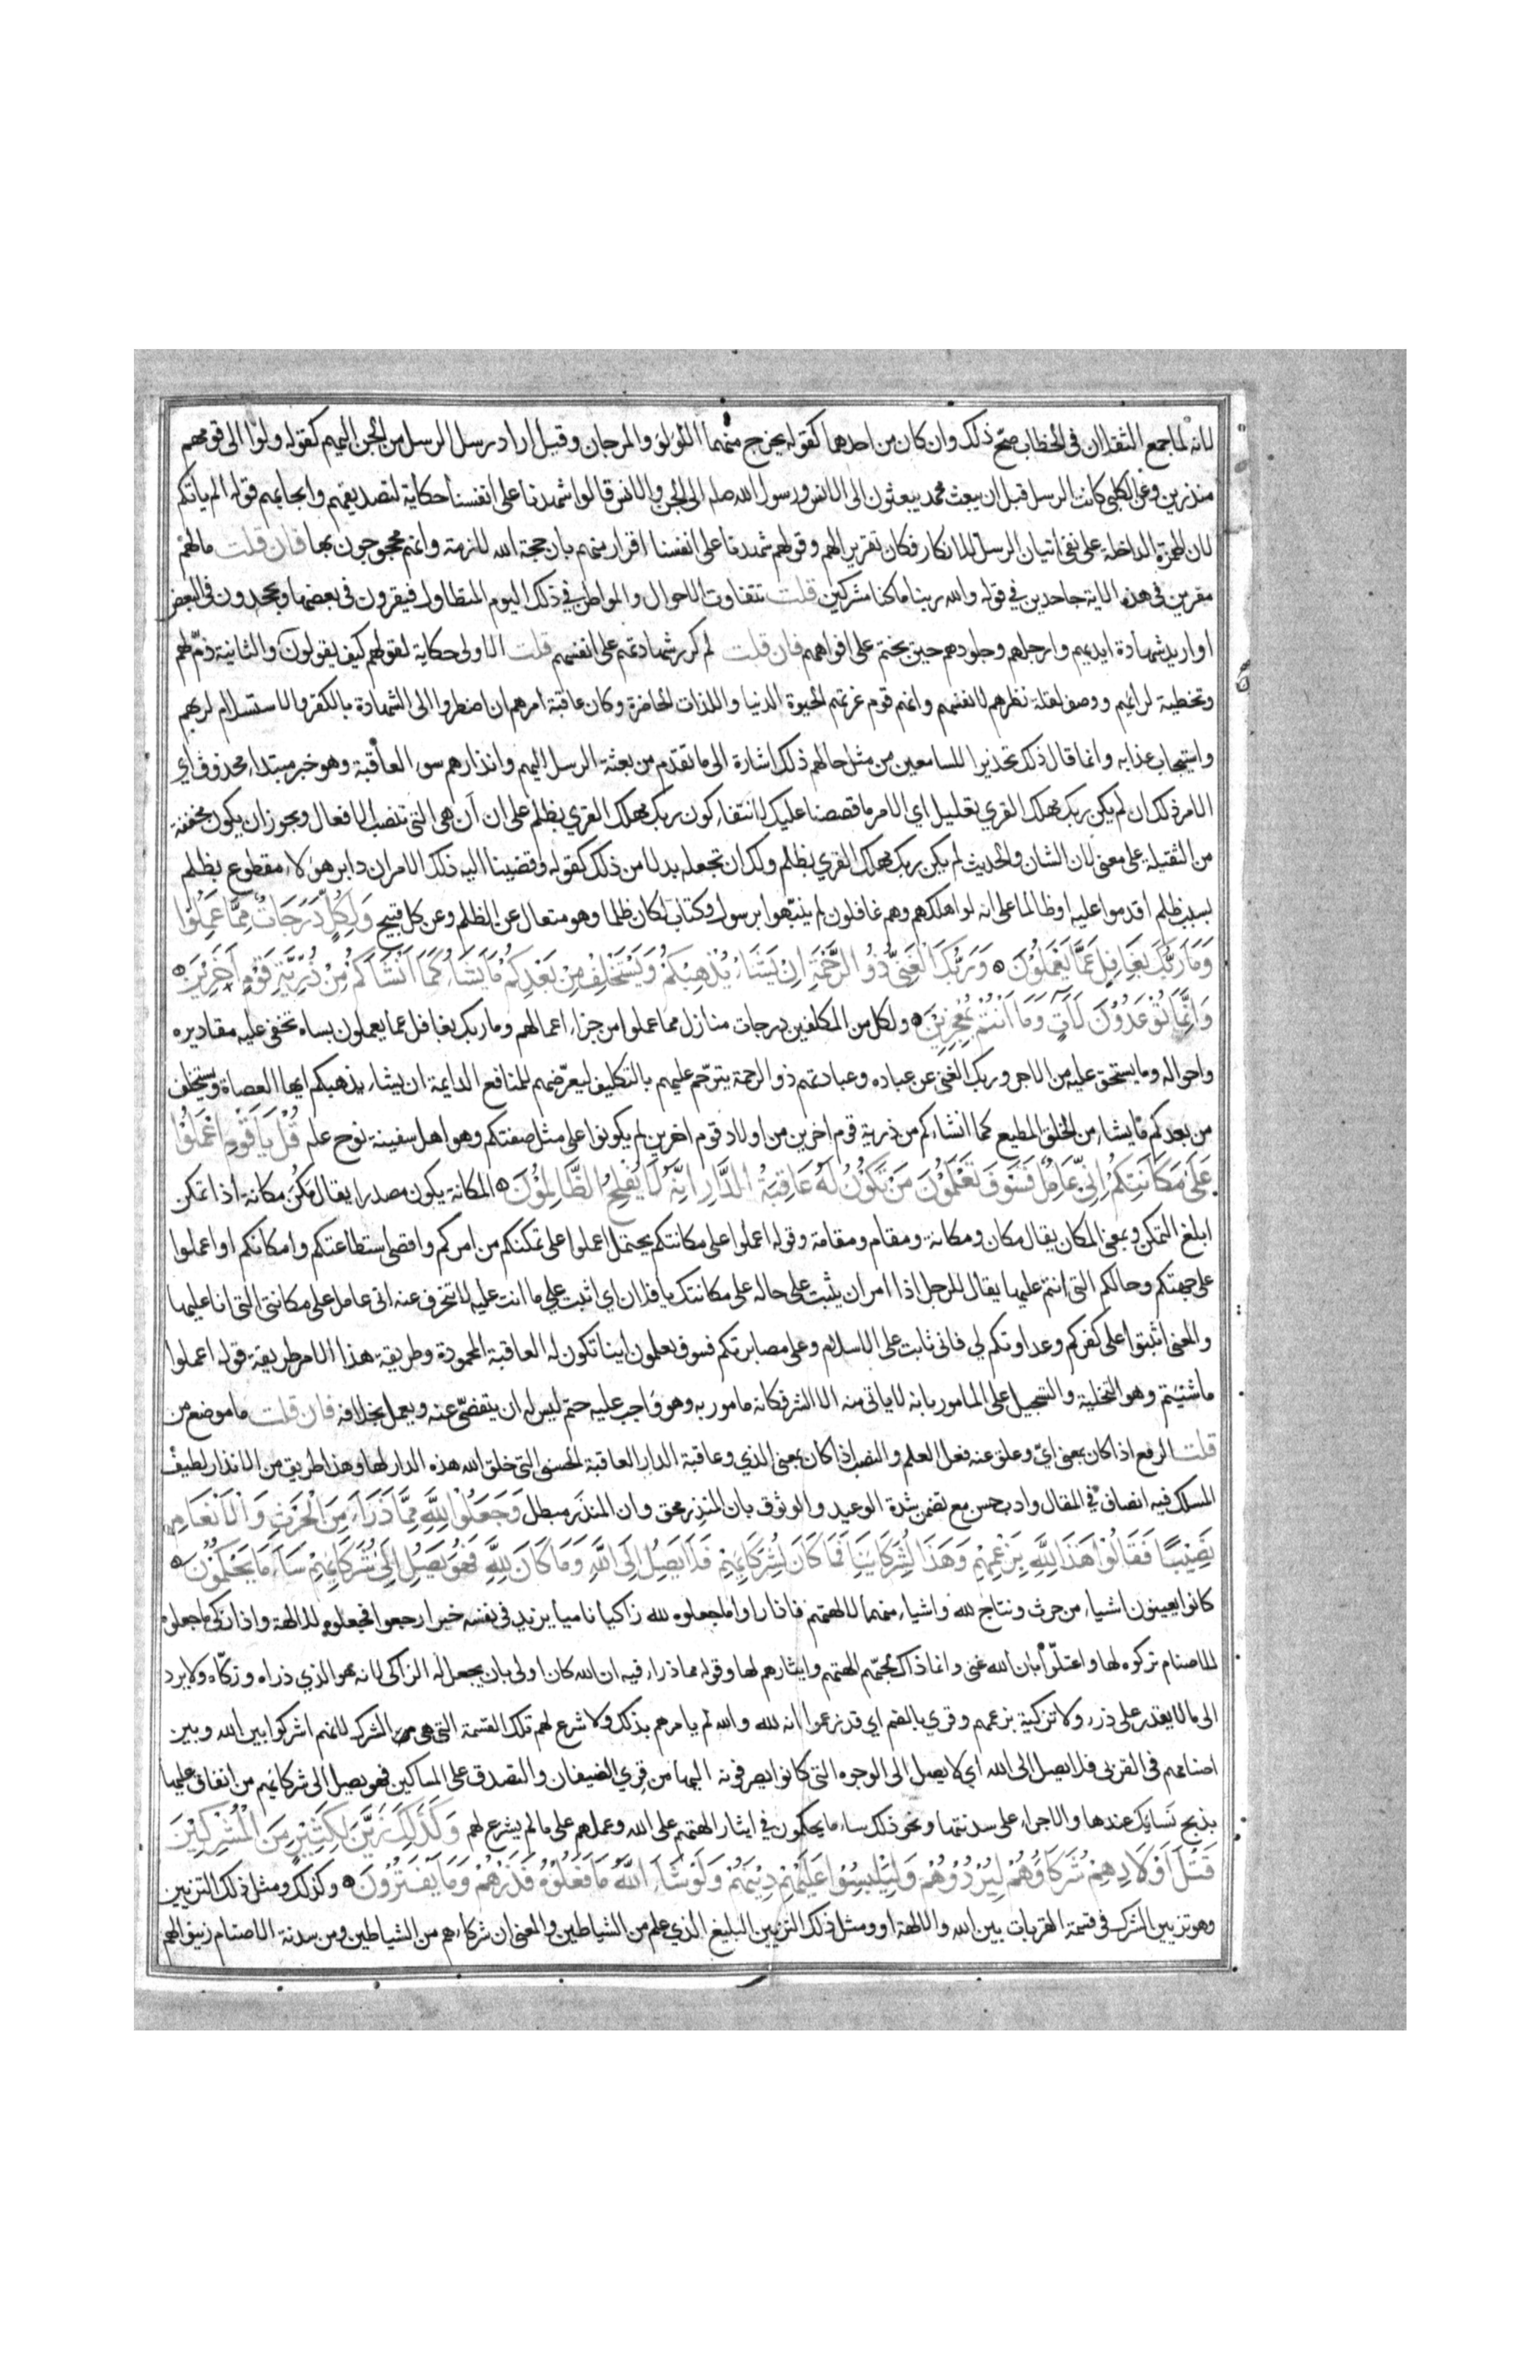 لانه لما جمع الثقلان في الخطاب صح ذلك وان كان من احدهما كقوله يخرج منهما اللؤلؤ والمرجان وقيل اراد رسل الرسل من الجن اليهم كقوله ولوا الى قومهم
منذرين وعن الكلبي كانت الرسل قبل ان يبعث محمد يبعثون الى الانس ورسول الله صلم الى الجن والانس قالوا شهدنا على انفسنا حكاية لتصديقهم وايجابهم قوله الم ياتكم
لان الهمزة الداخلة على نفي اتيان الرسل للانكار فكان تقريرا لهم وقولهم شهدنا على انفسنا اقرار منهم بان حجة الله لازمة وانهم محجوجون بها فان قلت ما لهم
مقرين في هذه الاية جاحدين في قوله والله ربنا ما كنا مشركين قلت تتفاوت الاحوال والمواطن في ذلك اليوم المتطاول فيقرون في بعضها ويجحدون في البعض
او اريد شهادة ايديهم وارجلهم وجلودهم حين يختم على افواههم فان قلت لم كرر شهادتهم على انفسهم قلت الاولى حكاية لقولهم كيف يقولون والثانية ذم لهم
وتخطية لرايهم ووصف لقلة نظرهم لانفسهم وانهم قوم غرتهم الحيوة الدنيا واللذات الحاضرة وكان عاقبة امرهم ان اضطروا الى الشهادة بالكفر والاستسلام لربهم
واستيجاب عذابه وانما قال ذلك تحذيرا للسامعين من مثل حالهم ذلك اشارة الى ما تقدم من بعثة الرسل اليهم وانذارهم سوء العاقبة وهو خبر مبتداء محذوف اي
الامر ذلك ان لم يكن ربك مهلك القري تعليل اي الامر ما قصصنا عليك لانتفاء كون ربك مهلك القري بظلم على ان ان هي التي تنصب الافعال ويجوز ان يكون مخففة
من الثقيلة على معنى لان الشان والحديث لم يكن ربك مهلك القري بظلم ولك ان تجعله بدلا من ذلك كقوله وقضينا اليه ذلك الامر ان دابر هولاء مقطوع بظلم
بسبب ظلم اقدموا عليه او ظالما على انه لو اهلكهم وهم غافلون لم ينبهوا برسول وكتاب لكان ظلما وهو متعال عن الظلم وعن كل قبيح وَلِكُلٍّ دَرَجَاتٌ مِمَّا عَمِلُوا
وَمَا رَبُّكَ بِغَافِلٍ عَمَّا يَعْمَلُونَ وَرَبُّكَ الْغَنِيُّ ذُو الرَّحْمَةِ اِنْ يَشَاءْ يُذْهِبْكُمْ وَيَسْتَخْلِفْ مِنْ بَعْدِكُمْ مَا يَشَاءُ كَمَا اَنْشَاَكُمْ مِنْ ذُرِّيَّةِ قَوْمٍ آخَرِينَ
وَاِنَّمَا تُوعَدُونَ لَآتٍ وَمَا اَنْتُمْ بِمُعْجِزِينَ ولكل من المكلفين درجات منازل مما عملوا من جزاء اعمالهم وما ربك بغافل عما يعملون بساه تخفى عليه مقاديره
واحواله وما يستحق عليه من الاجر وربك الغني عن عباده وعبادتهم ذو الرحمة يترحم عليهم بالتكليف ليعرضهم للمنافع الدايمة ان يشاء يذهبكم ايها العصاة ويستخلف
من بعدكم ما يشاء من الخلق المطيع كما انشاءكم من ذرية قوم اخرين من اولاد قوم اخرين لم يكونوا على مثل صفتكم وهو اهل سفينة نوح علم قُلْ يَا قَوْمِ اعْمَلُوا
عَلَى مَكَانَتِكُمْ اِنِّي عَامِلٌ فَسَوْفَ تَعْلَمُونَ مَنْ تَكُونُ لَهُ عَاقِبَةُ الدَّارِ اِنَّهُ لَا يُفْلِحُ الظَّالِمُونَ المكانة يكون مصدرا يقال مكن مكانة اذا تمكن
ابلغ التمكن وبمعنى المكان يقال مكان ومكانة ومقام ومقامة وقوله اعملوا على مكانتكم يحتمل اعملوا على تمكنكم من امركم واقصى استطاعتكم وامكانكم او اعملوا
على جهتكم وحالكم التي انتم عليها يقال للرجل اذا امر ان يثبت على حاله على مكانتك يا فلان اي اثبت على ما انت عليه لا تنحرف عنه اني عامل على مكانتي التي انا عليها
والمعنى اثبتوا على كفركم وعداوتكم لي فاني ثابت على الاسلام وعلى مصابرتكم فسوف يعلمون اينا تكون له العاقبة المحمودة وطريقة هذا الامر طريقة قوله اعملوا
ما شئتم وهو التخلية والتسجيل على المامور بانه لا ياتي منه الا الشر فكانه مامور به وهو واجب عليه حتم ليس له ان يتفصى عنه ويعمل بخلافه فان قلت ما موضع من
قلت الرفع اذا كان بمعنى اي وعلق عنه فعل العلم والنصب اذا كان بمعنى الذي وعاقبة الدار العاقبة الحسنى التي خلق الله هذه الدار لها وهذا طريق من الانذار لطيف
المسلك فيه انصاف في المقال وادب حسن مع تضمن شدة الوعيد والوثوق بان المنذر محق وان المنذر مبطل وَجَعَلُوا لِلَّهِ مِمَّا ذَرَاَ مِنَ الْحَرْثِ وَالْاَنْعَامِ
نَصِيبًا فَقَالُوا هَذَا لِلَّهِ بِزَعْمِهِمْ وَهَذَا لِشُرَكَائِنَا فَمَا كَانَ لِشُرَكَائِهِمْ فَلَا يَصِلُ اِلَى اللَّهِ وَمَا كَانَ لِلَّهِ فَهُوَ يَصِلُ اِلَى شُرَكَائِهِمْ سَاءَ مَا يَحْكُمُونَ
كانوا يعينون اشياء من حرث ونتاج لله واشياء منهما لالهتهم فاذا راوا ما جعلوه لله زاكيا ناميا يزيد في نفسه خيرا رجعوا فجعلوه للالهة واذا زكى ما جعلوه
للاصنام تركوه لها واعتلوا بان الله غني وانما ذاك لحبهم الهتهم وايثارهم لها وقوله مما ذراء فيه ان الله كان اولى بان يجعل له الزاكي لانه هو الذي ذراه وزكاه ولا يرد
الى ما لا يقدر على ذرء ولا تزكية بزعمهم وقري بالضم اي قد زعموا انه لله والله لم يامرهم بذلك ولا شرع لهم تلك القسمة التي هي من الشرك لانهم اشركوا بين الله وبين
اصنامهم في القربى فلا يصل الى الله اي لا يصل الى الوجوه التي كانوا يصرفونه اليها من قري الضيفان والتصدق على المساكين فهو يصل الى شركائهم من انفاق عليها
بذبح نسائك عندها والاجراء على سدنتها ونحو ذلك ساء ما يحكمون في ايثار الهتهم على الله وعملهم على ما لم يشرع لهم وَكَذَلِكَ زَيَّنَ لِكَثِيرٍ مِنَ الْمُشْرِكِينَ
قَتْلَ اَوْلَادِهِمْ شُرَكَاؤُهُمْ لِيُرْدُوهُمْ وَلِيَلْبِسُوا عَلَيْهِمْ دِينَهُمْ وَلَوْ شَاءَ اللَّهُ مَا فَعَلُوهُ فَذَرْهُمْ وَمَا يَفْتَرُونَ وكذلك ومثل ذلك التزيين
وهو تزيين الشرك في قسمة القربات بين الله والالهة او ومثل ذلك التزيين البليغ الذي علم من الشياطين والمعنى ان شركاءهم من الشياطين ومن سدنة الاصنام زينوا لهم